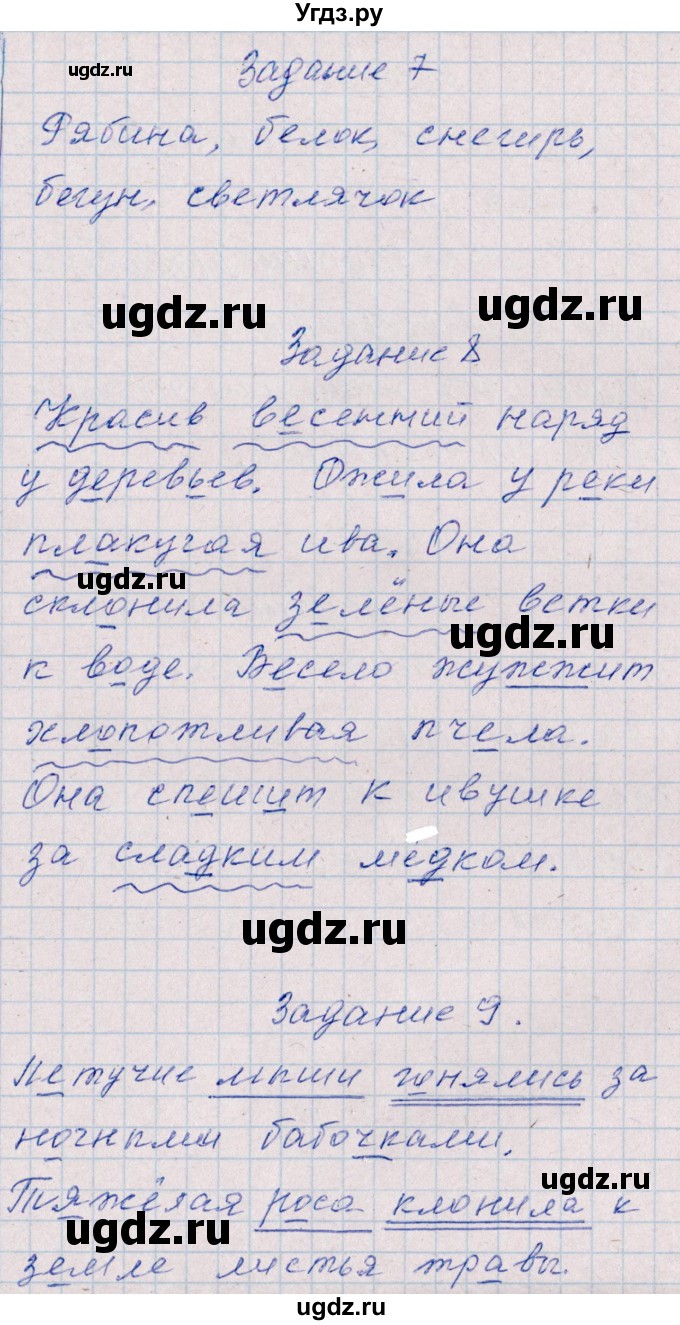 Угдз.ру
ugdz.ru
Задание 7
Рябина, белок, снегирь,
бегун, светлячок
ugdz.ru
ugdz.ru
Задание 8
Красив весенний наряд
у деревьев. Ожила у реки
плакучая ива. Она
ugdz.ru
склонила зелёные ветки
ugdz.ru
к воде. Весело жужжит
хлопотливая пчела.
Она спешит к ивушке
за сладким медком.
ugdz.ru
Задание 9.
Летучие мыши гонялись за
ночными бабочками.
ugdz.ru
Тяжёлая роса клонила к
земле листья травы.
ugdz.ru